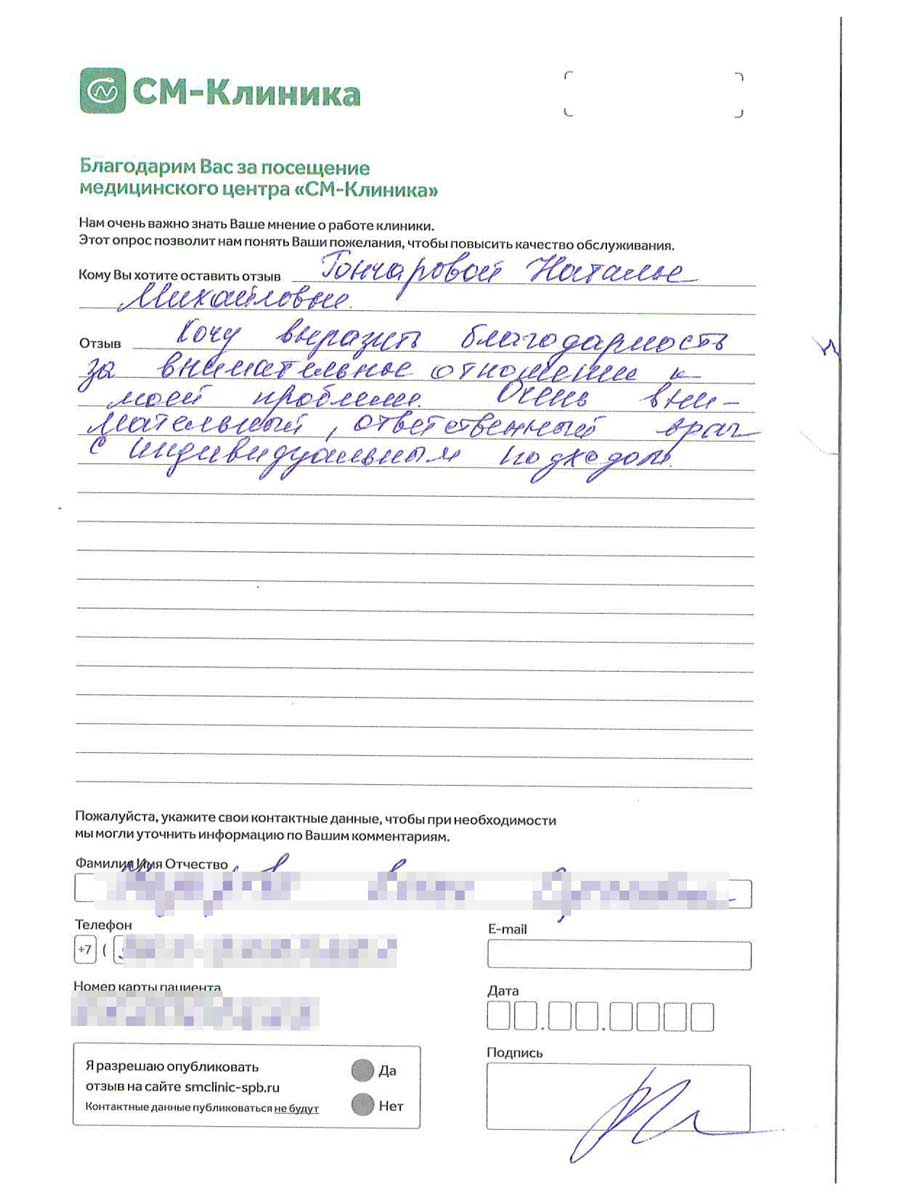 СМ-Клиника
Благодарим Вас за посещение
медицинского центра «СМ-Клиника»
Нам очень важно знать Ваше мнение о работе клиники.
Этот опрос позволит нам понять Ваши пожелания, чтобы повысить качество обслуживания.
Кому Вы хотите оставить отзыв Гончаровой Наталье
Михайловне.
Отзыв Хочу выразить благодарность
за внимательное отношение к
моей проблеме. Очень вни-
мательный, ответственный врач
с индивидуальным подходом.
Пожалуйста, укажите свои контактные данные, чтобы при необходимости
мы могли уточнить информацию по Вашим комментариям.
Фамилия Имя Отчество
Телефон
E-mail
+7 (
Номер карты пациента
Дата
Я разрешаю опубликовать
отзыв на сайте smclinic-spb.ru
Контактные данные публиковаться не будут
Да
Нет
Подпись